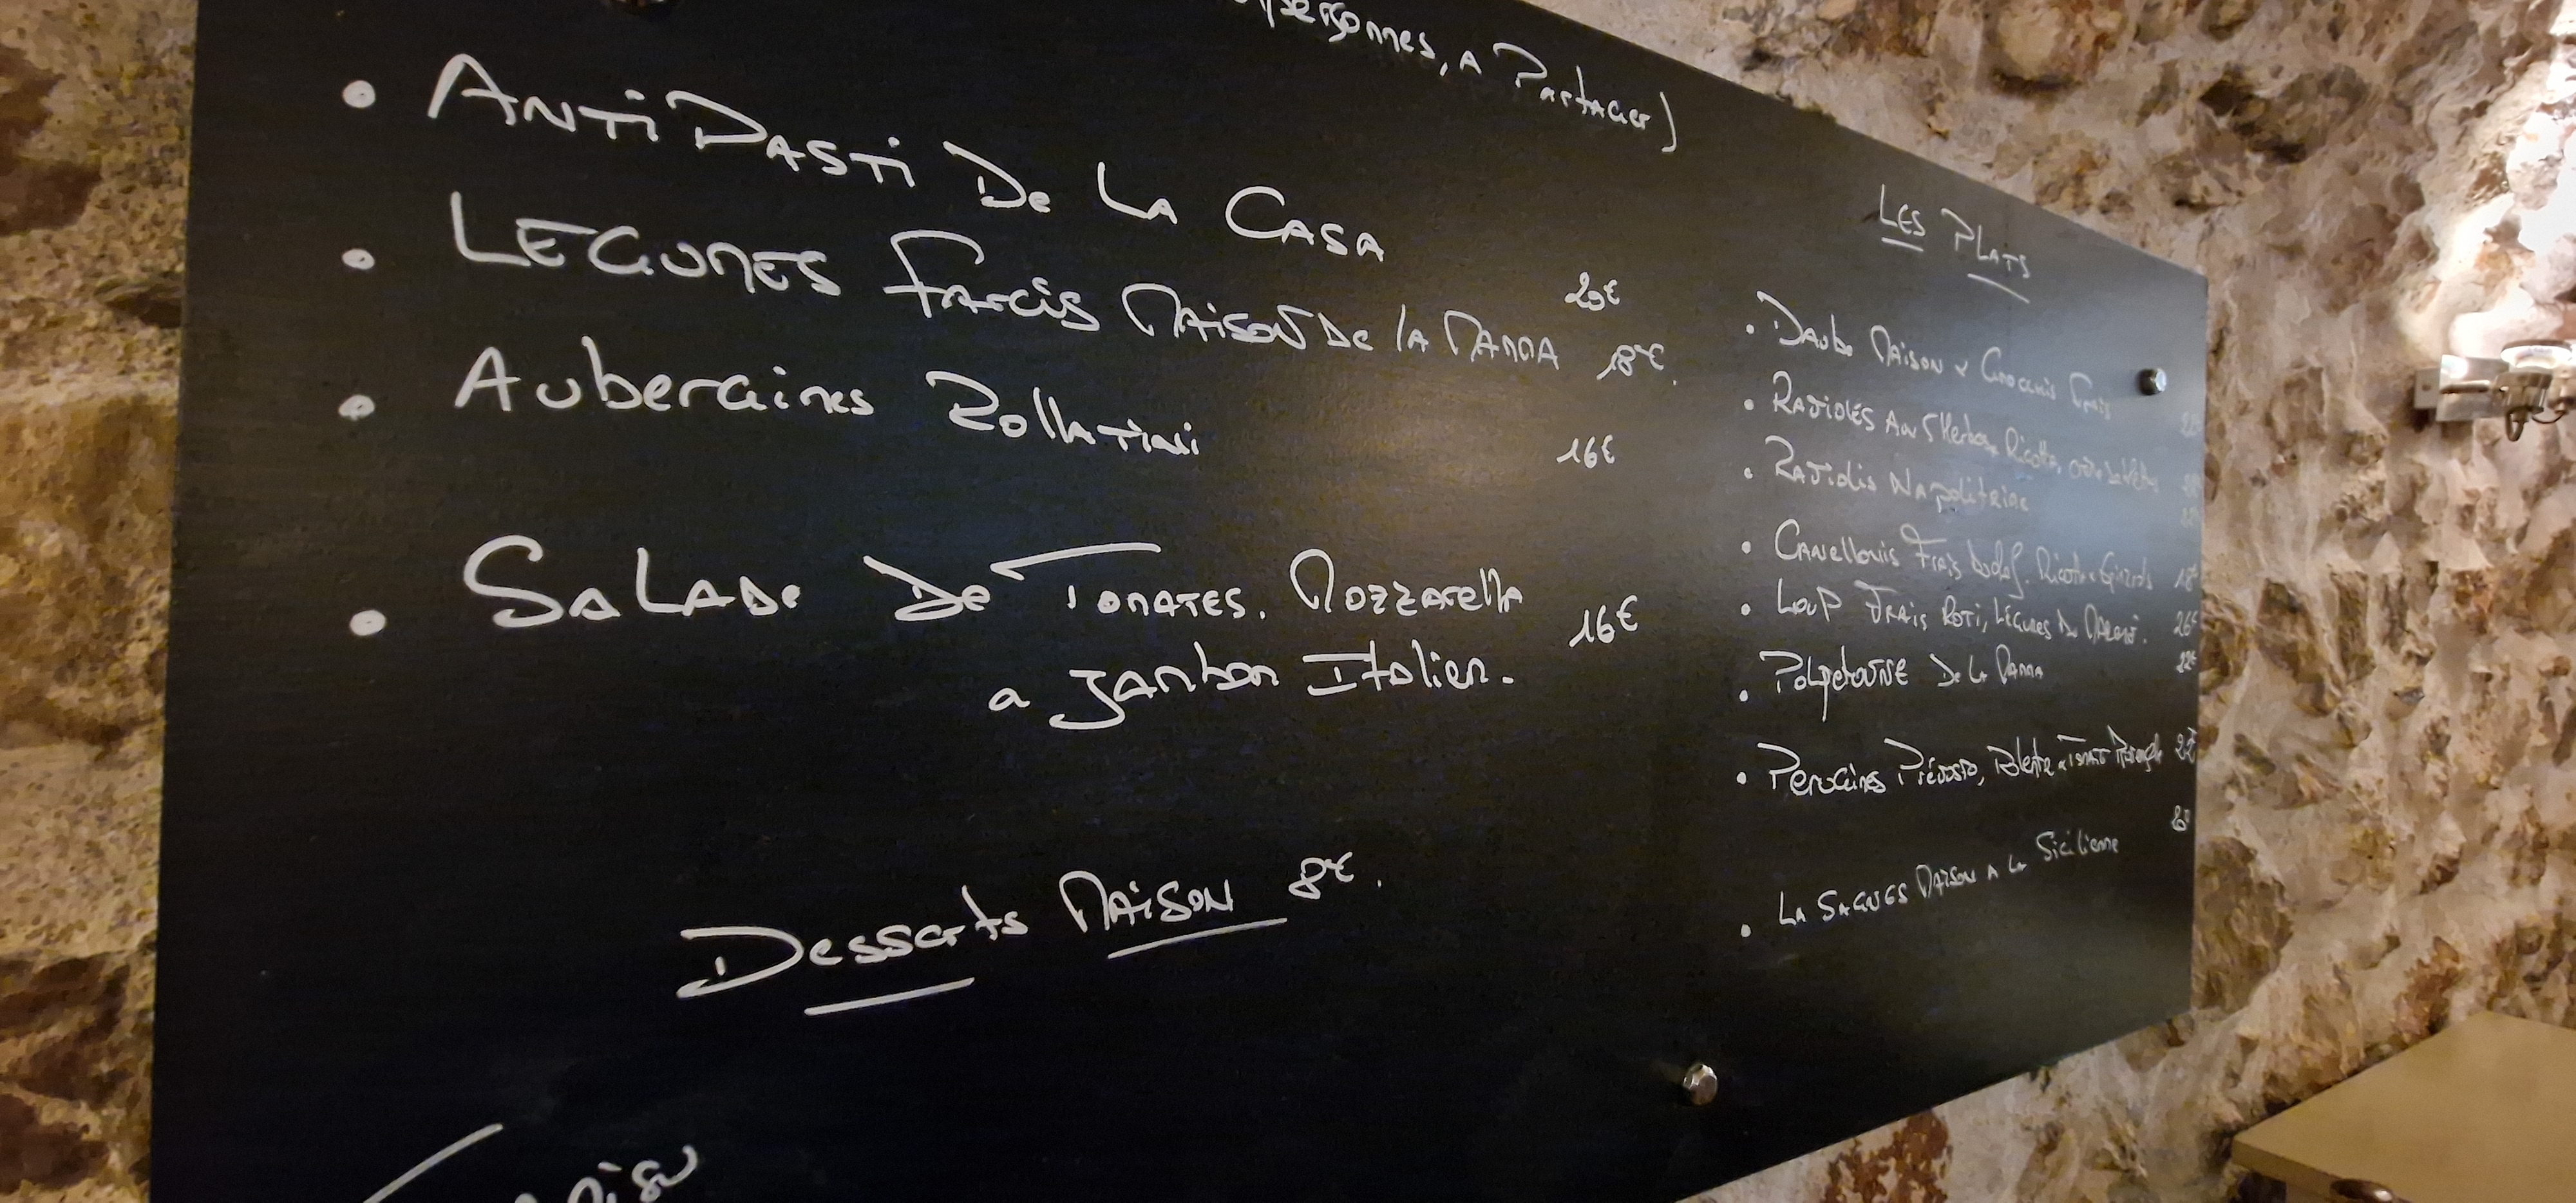 personnes, a Partager)
• ANTiPASTi De LA CASA 20€
• LEGUMES Farcis MAiSON De la MAMMA 18€.
• Aubergines Rollatini 16€
• SALADe De TOMATES. Mozzarella 16€
a JAMbon Italien.
Desserts MAiSON 8€.
LES PLATS
• Daube MAISON & Gnocchis Frais
• RAViOLES Aux Herbes, Ricotta,
• RAViolis Napolitaine
• CANellonis Frais Ricotta Epinards 18€
• LOUP Frais ROTi, LEGUMES Du MARCHé. 26€
• Polpetonne De La MAMMA 22€
• Perugines Polenta
• LA SAGNES MAISON A La Sicilienne